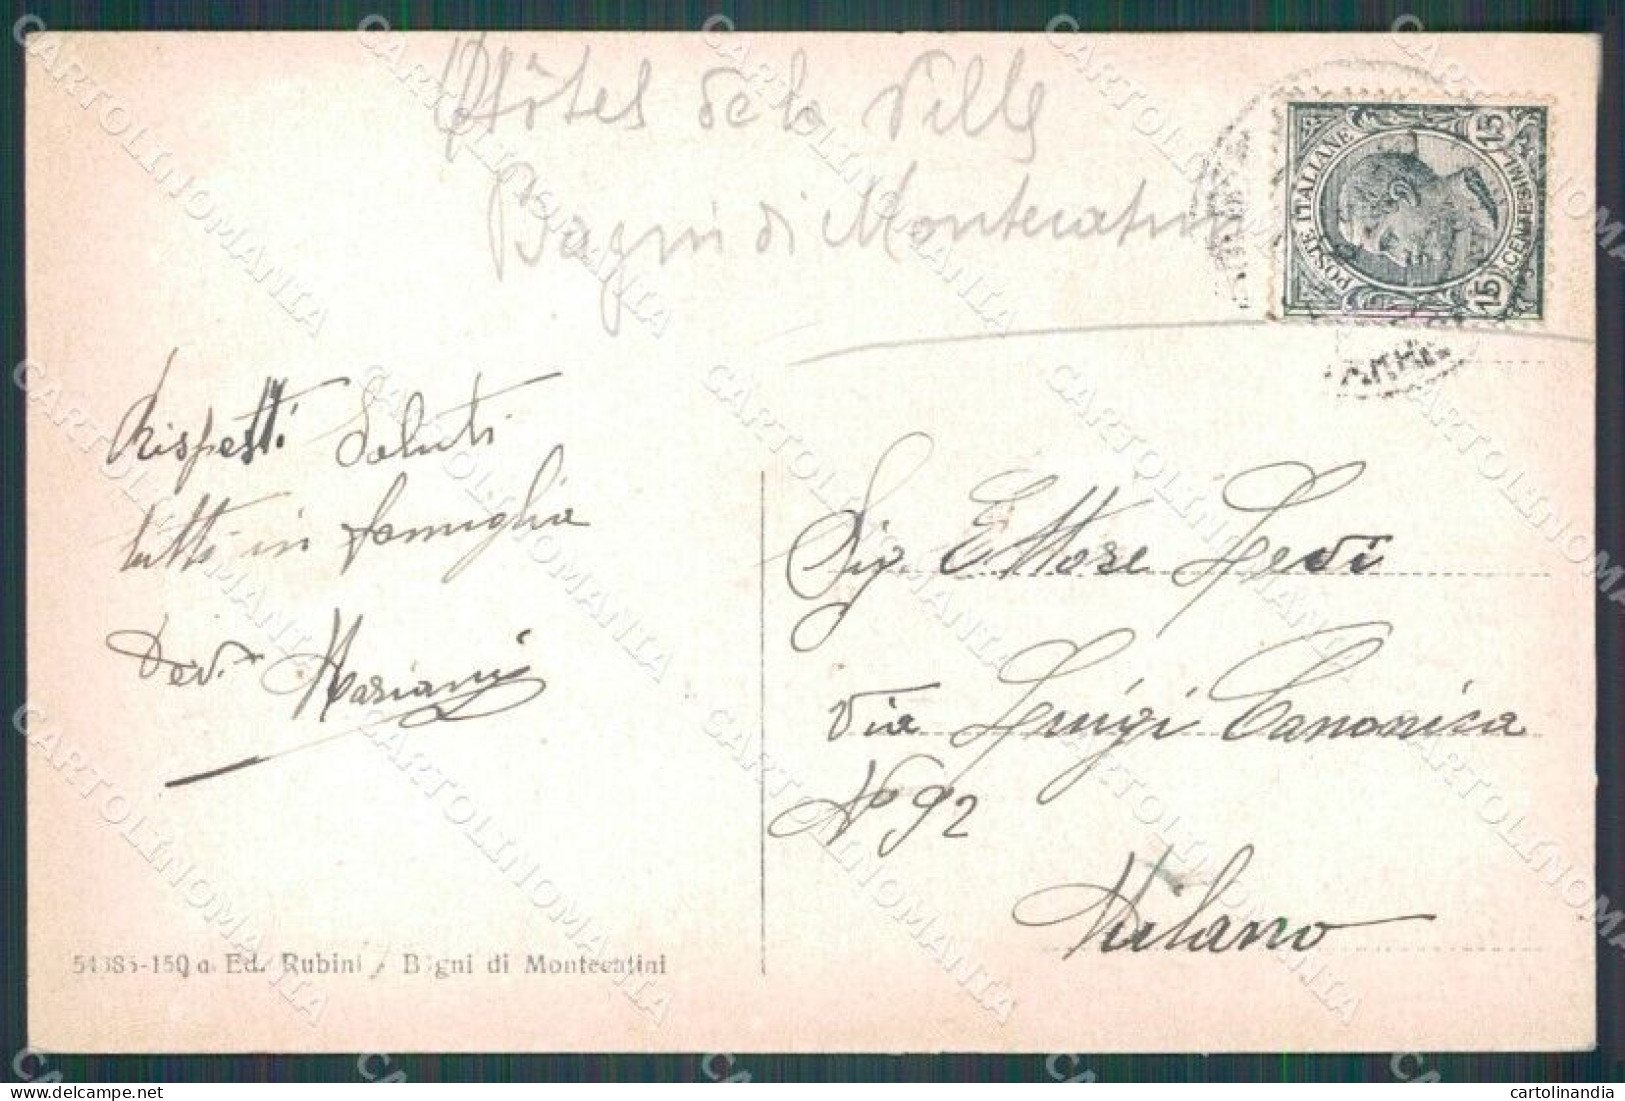 Hôtel de la Ville
Bagni di Montecatini
POSTE ITALIANE
15 CENTESIMI 15
Rispetti Saluti
tutti in famiglia
Dev.mo Mariani
Sig. Ettore Levi
Via Luigi Canonica
No 92
Milano
Ed. Rubini - Bagni di Montecatini
CARTOLINOMANIA
cartolinandia